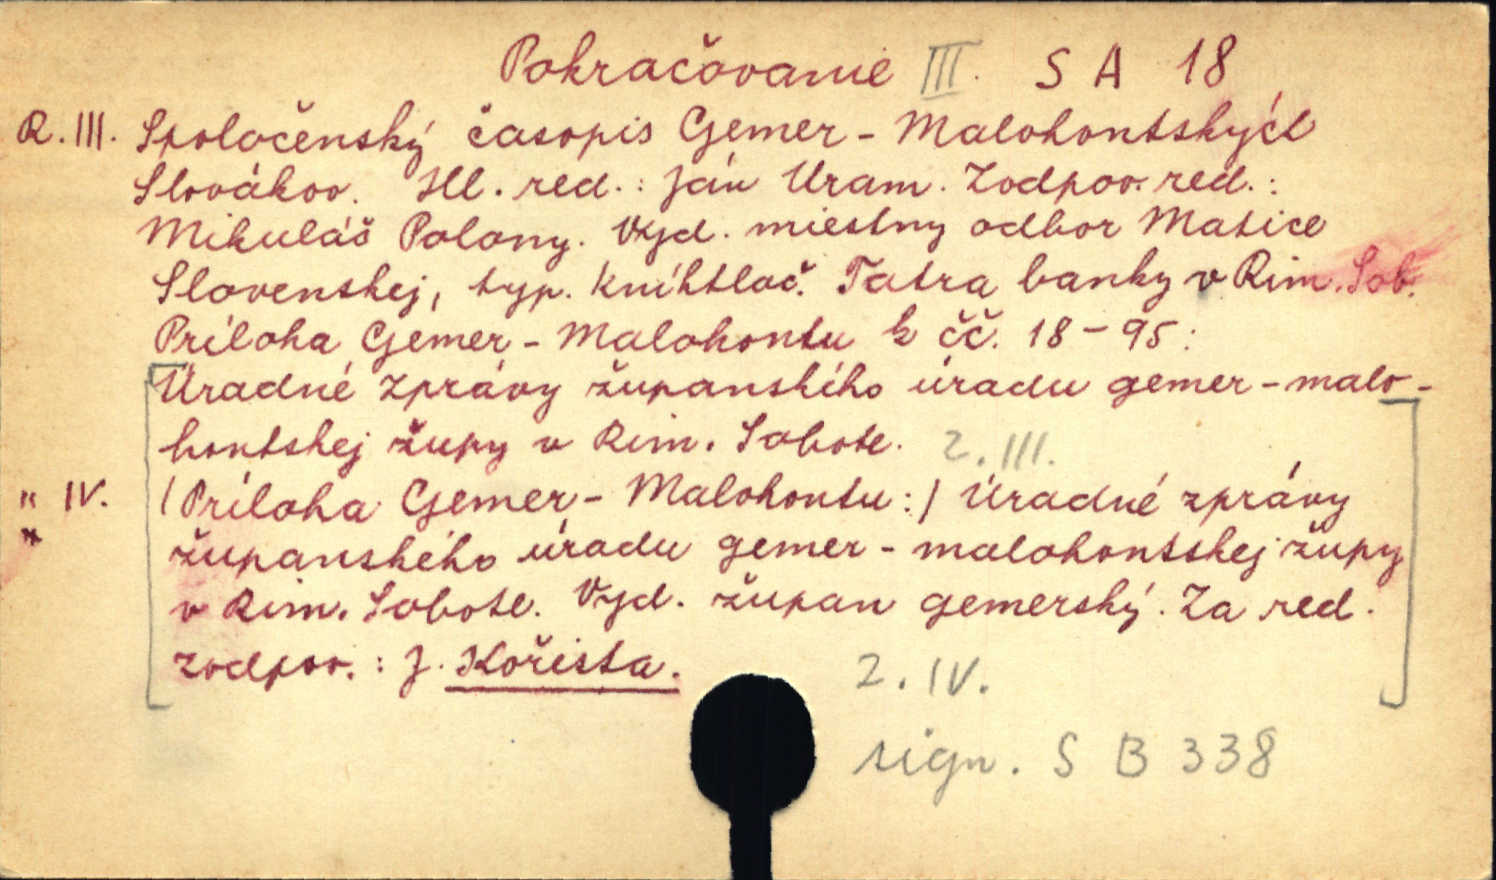 Pokračovanie III. S A 18
R. III. Spoločenský časopis Gemer-Malohontských
Slovákov. Hl. red.: Ján Uram. Zodpov. red.:
Mikuláš Polony. Vyd. miestny odbor Matice
Slovenskej, typ. kníhtlač. Tatra banky v Rim. Sob.
Príloha Gemer-Malohontu k čč. 18-95:
Úradné zprávy županského úradu gemer-malo-
hontskej župy v Rim. Sobote. 2. III.
" IV. (Príloha Gemer-Malohontu:) Úradné zprávy
županského úradu gemer-malohontskej župy
v Rim. Sobote. Vyd. župan gemerský. Za red.
zodpov.: J. Kořista. 2. IV.
sign. S B 338